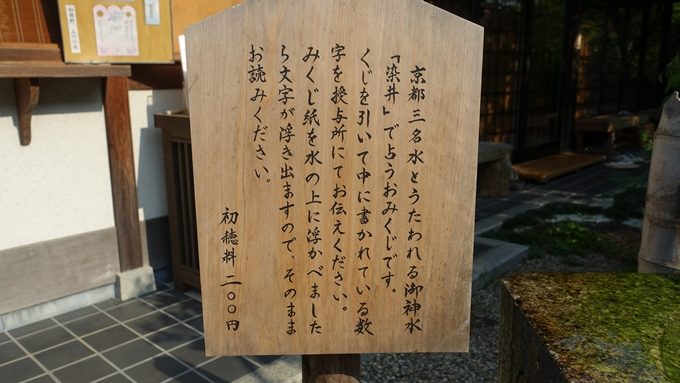 京都三名水とうたわれる御神水
「染井」で占うおみくじです。
くじを引いて中に書かれている数
字を授与所にてお伝えください。
みくじ紙を水の上に浮かべました
ら文字が浮き出ますので、そのまま
お読みください。
初穂料 二〇〇円